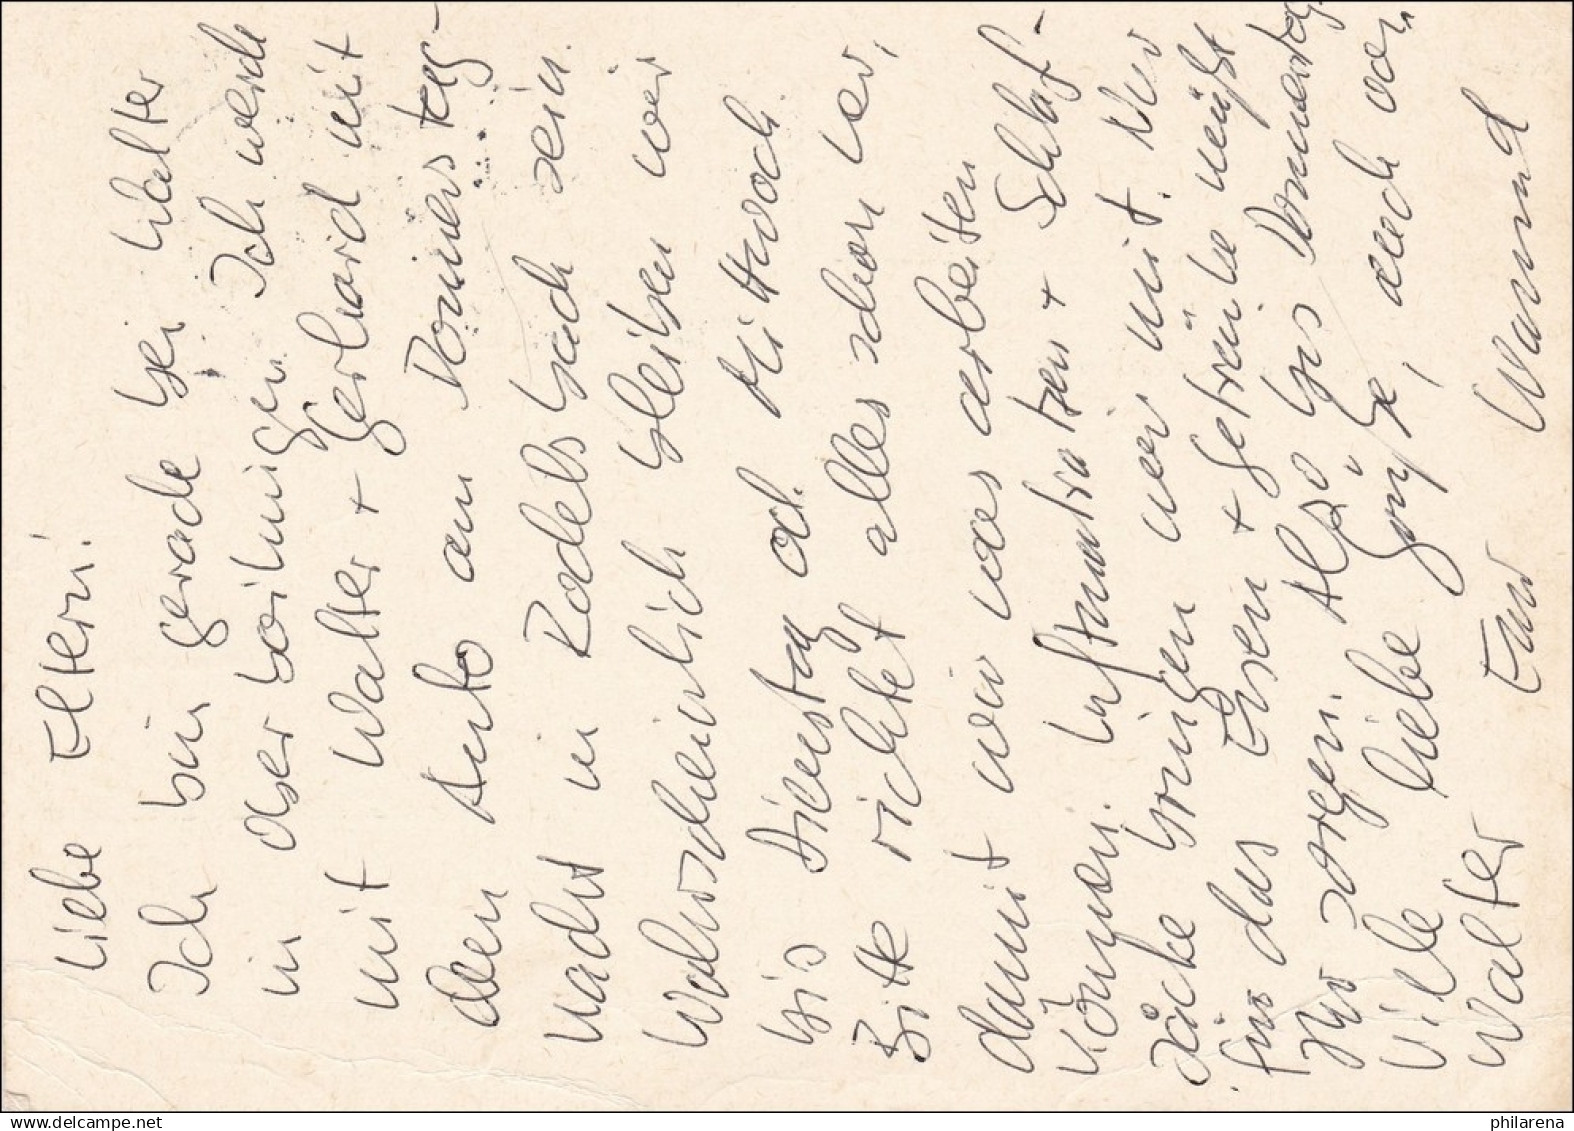 Liebe Eltern!
Ich bin gerade bei Walter
in Oberboihingen. Ich werde
mit Walter + Gerhard mit
dem Auto am Donnerstag-
nacht in Rodelsbach sein.
Wahrscheinlich bleiben wir
bis Dienstag od. Mittwoch.
Bitte richtet alles schon her,
damit wir was arbeiten
können. Luftmatratzen + Schlaf-
säcke bringen wir mit. Nur
für das Essen + Getränke müßt
Ihr sorgen. Also bis Donnerstag.
Viele liebe Grüße, auch von
Walter Euer
philarena